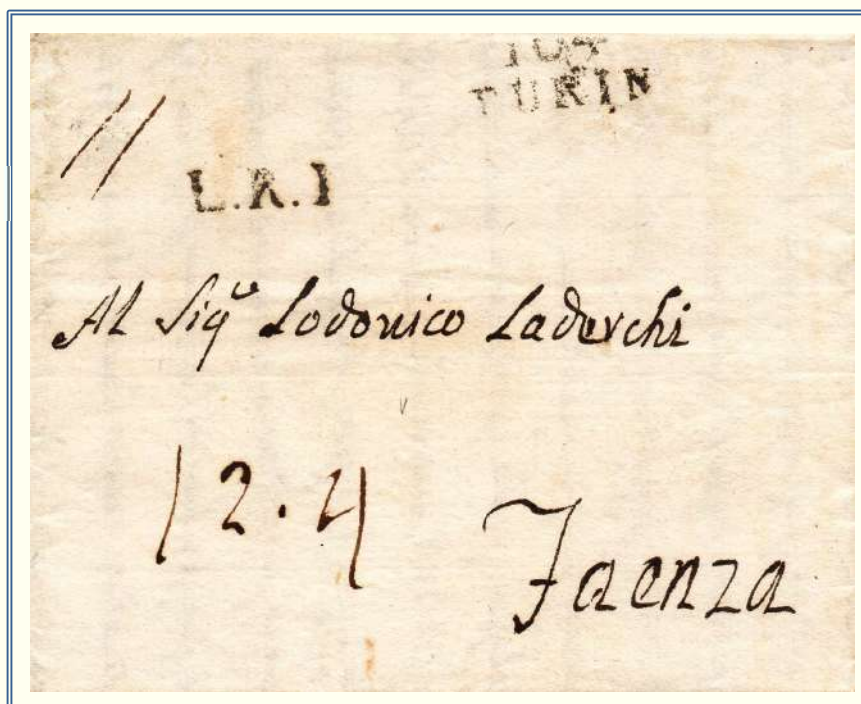 104
TURIN
L.R.I
Al Sigʳ Lodovico Laderchi
12.4
Faenza